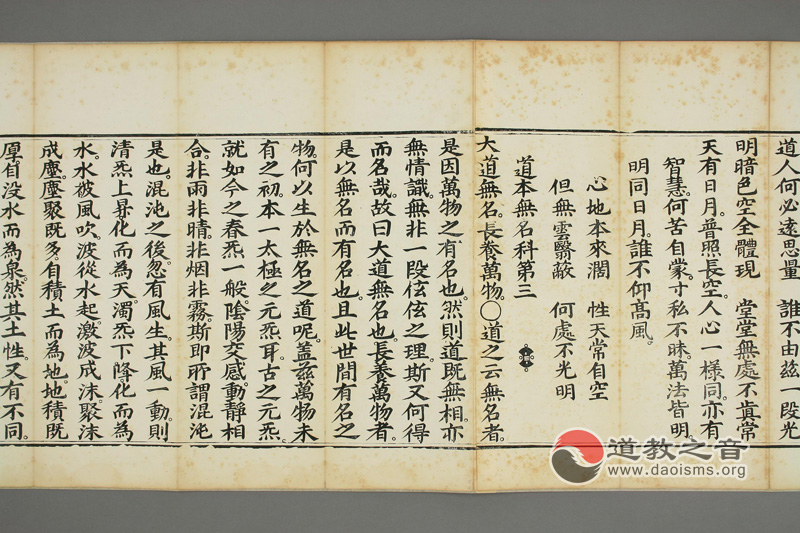 道人何必遠思量　誰不由玆一段光
明暗色空全體現　堂堂無處不眞常
天有日月。普照長空。人心一樣同。亦有
智慧。何苦自蒙。寸私不昧。萬法皆明。
明同日月。誰不仰高風。
心地本來濶　性天常自空
但無雲翳蔽　何處不光明
道本無名科第三
大道無名。長養萬物。〇道之云無名者。
是因萬物之有名也。然則道既無相。亦
無情識。無非一段伭伭之理。斯又何得
而名哉。故曰大道無名也。長養萬物者。
是以無名而有名也。且此世間有名之
物。何以生於無名之道呢。蓋玆萬物未
有之初。本一太極之元炁耳。古之元炁。
就如今之春炁一般。陰陽交感。動靜相
合。非雨非晴。非烟非霧。斯即所謂混沌
是也。混沌之後。忽有風生。其風一動。則
清炁上昇。化而為天。濁炁下降。化而為
水。水被風吹。波從水起。激波成沫。聚沫
成塵。塵聚既多。自積土而為地。地積既
厚。自沒水而為泉。然其土性。又有不同。
道教之音
www.daoisms.org